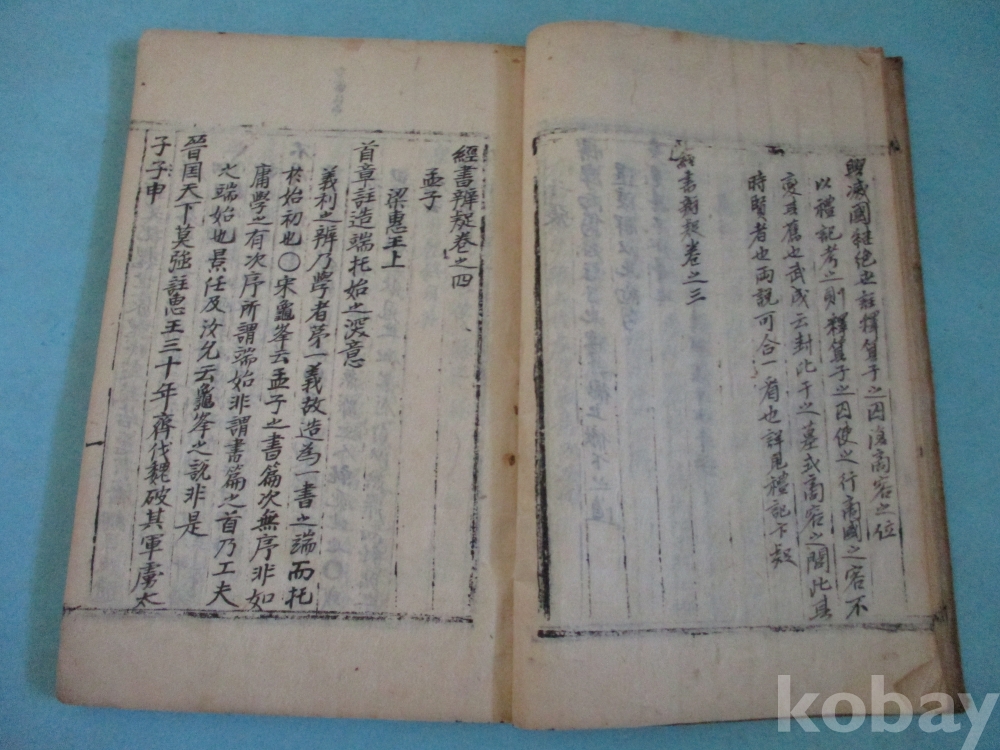 興滅國継絶世註釋箕子之囚復商容之位
以禮記考之則釋箕子之囚使之行商國之容不
変其舊也武成云封比干之墓式商容之閭此其
時賢者也両說可合一看也詳見禮記下疑
経書辨疑卷之三
經書辨疑卷之四
孟子
梁惠王上
首章註造端托始之深意
義利之辨乃學者第一義故造為一書之端而托
於始初也○宋龜峯云孟子之書篇次無序非如
庸學之有次序所謂端始非謂書篇之首乃工夫
之端始也景任及汝允云龜峯之說非是
晉国天下莫強註恵王三十年齊伐魏破其軍虜太
子申
一
kobay